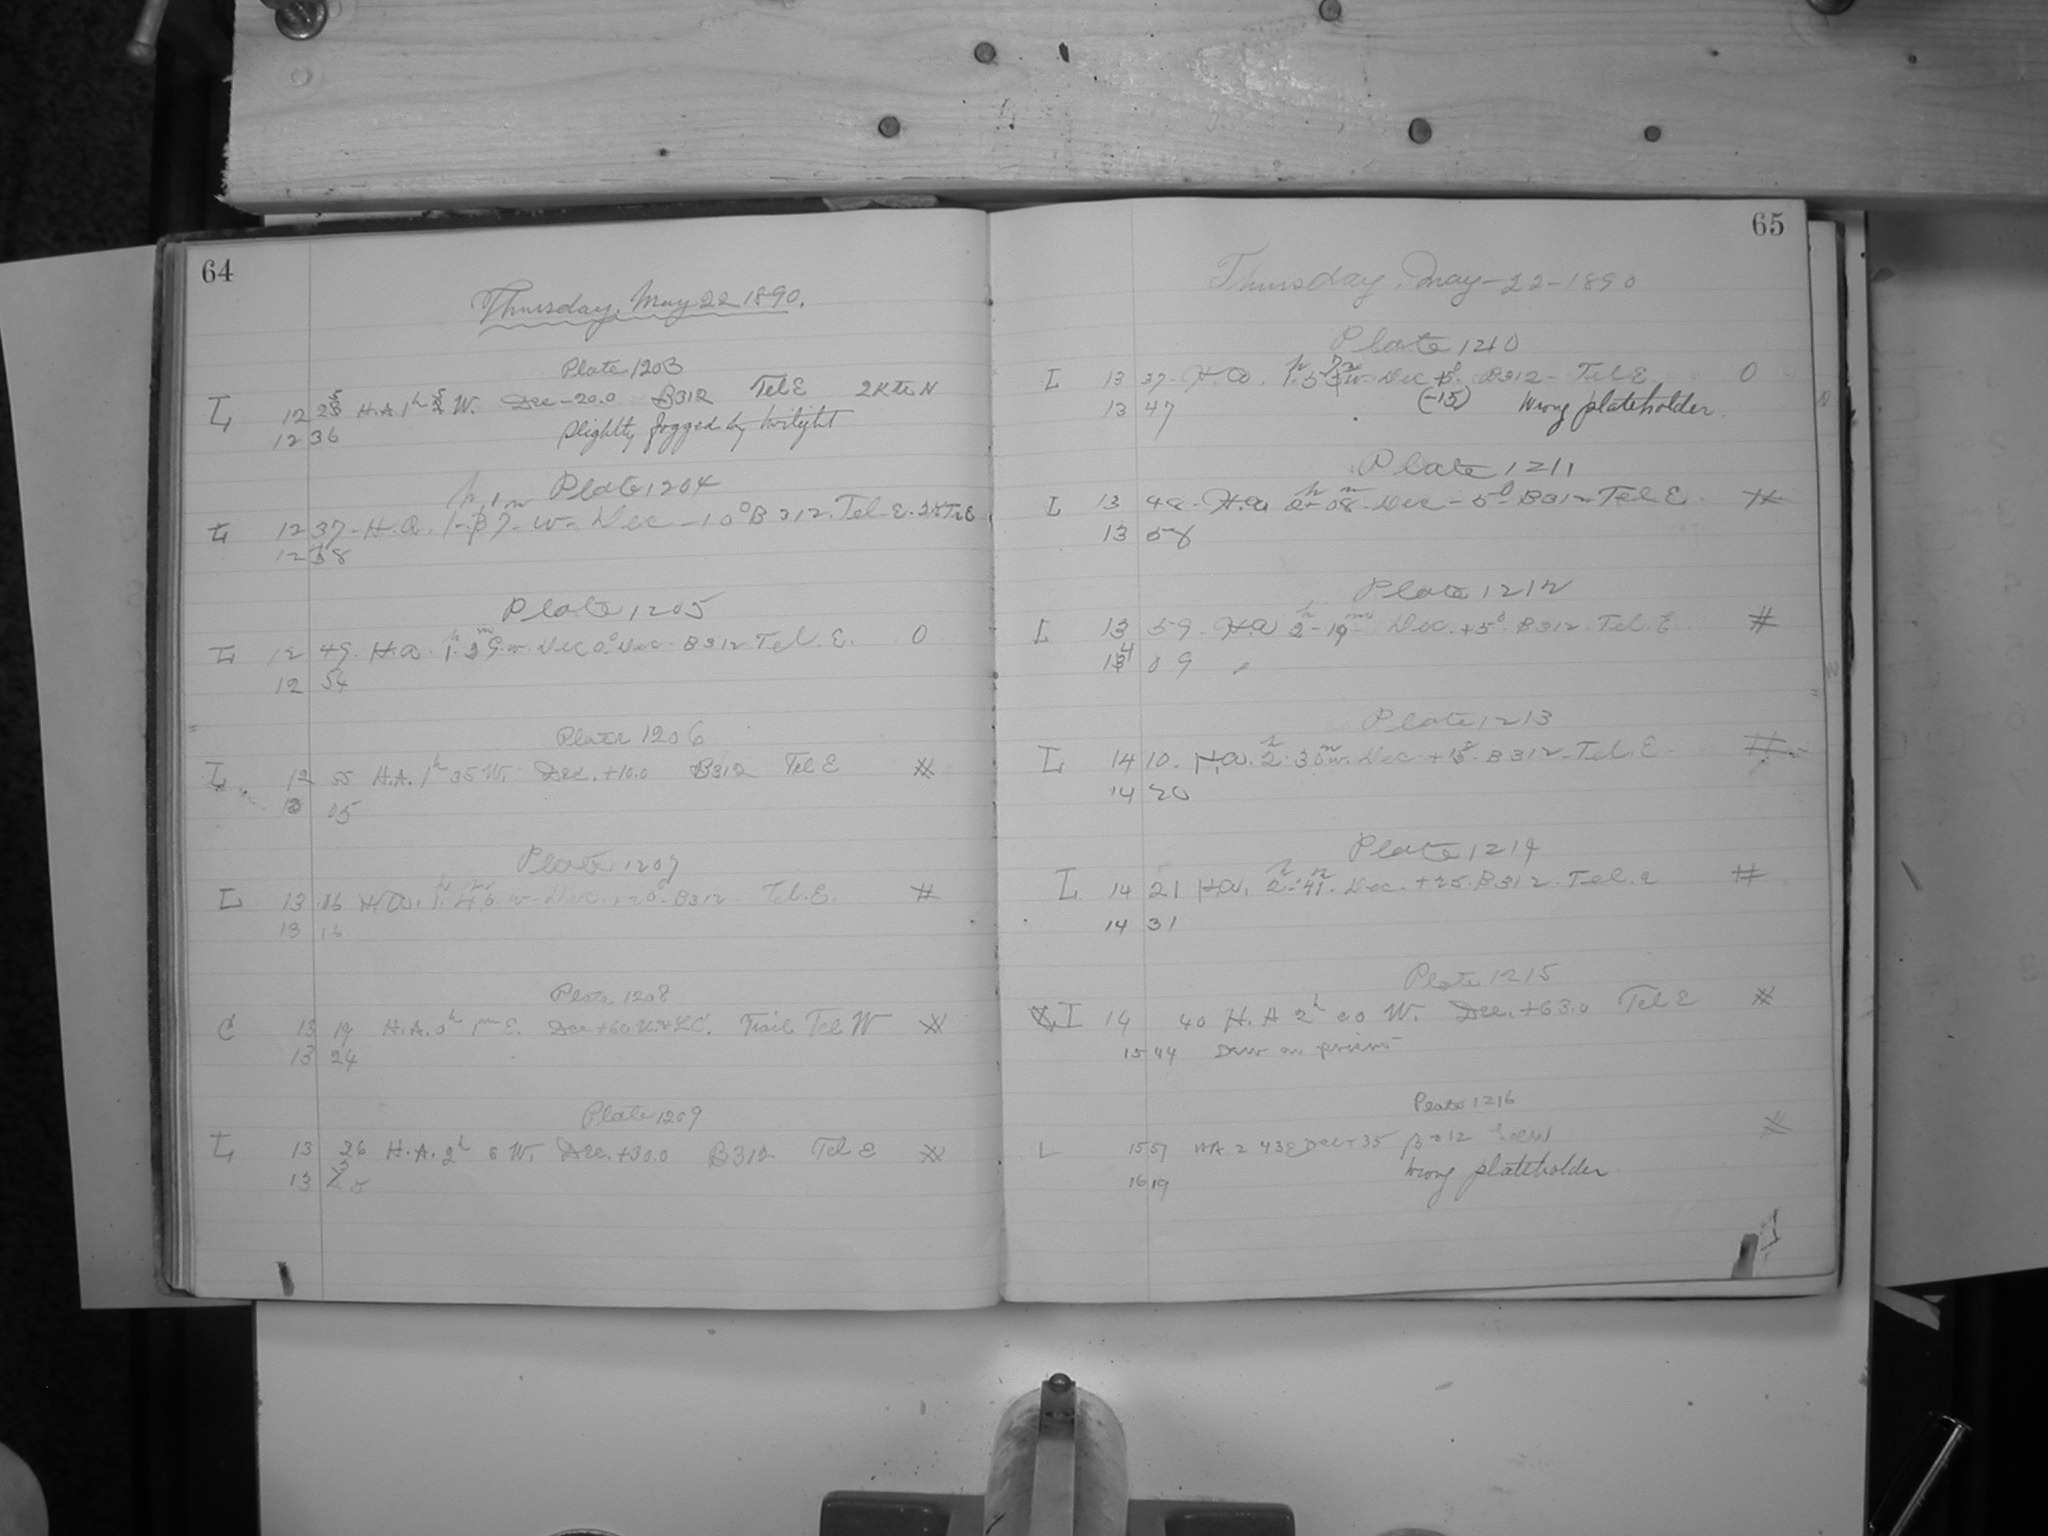 64
Thursday, May 22 1890.
Plate 1203
L 12 25 H.A. 1h W. Dec -20.0 B312 Tel E 2 Ktr N
12 36 Slightly fogged by twilight
Plate 1204
L 12 37 - H.A. 1h 17m W - Dec -10° B312. Tel. E. 2KTrE
12 38
Plate 1205
L 12 49. H.A. 1h 29m W. Dec 0° Dec - B312 Tel. E. 0
12 54
Plate 1206
L 12 55 H.A. 1h 35 W. Dec. +10.0 B312 Tel E #
13 05
Plate 1207
L 13 06 H.A. 1h 46m W - Dec. +20° B312 Tel. E. #
13 16
Plate 1208
C 13 19 H.A. 0h 1m E. Dec +60 U.+L.C. Trail Tel W #
13 24
Plate 1209
L 13 26 H.A. 2h 6 W. Dec. +30.0 B312 Tel E #
13
65
Thursday, May-22-1890
Plate 1210
I 13 37 - H.A. 1h W. Dec B312 - Tel E. 0
13 47 (-15) Wrong plateholder.
Plate 1211
I 13 48 - H.A. 2h 08m Dec - 5° B312 - Tel. E. #
13 58
Plate 1212
I 13 59 - H.A. 2h - 19m Dec. +5° B312 - Tel. E #
14 09
Plate 1213
I 14 10. H.A. 2h 30m W. Dec. +15° B312 - Tel. E #
14 20
Plate 1214
I 14 21 H.A. 2h 41m - Dec. +25. B312. Tel. E #
14 31
Plate 1215
I 14 40 H.A 2h 00 W. Dec. +63.0 Tel E #
15 44 Dew on prism
Plate 1216
L 15 57 HA 2 43 E Dec + 35 B312
16 19 Wrong plateholder